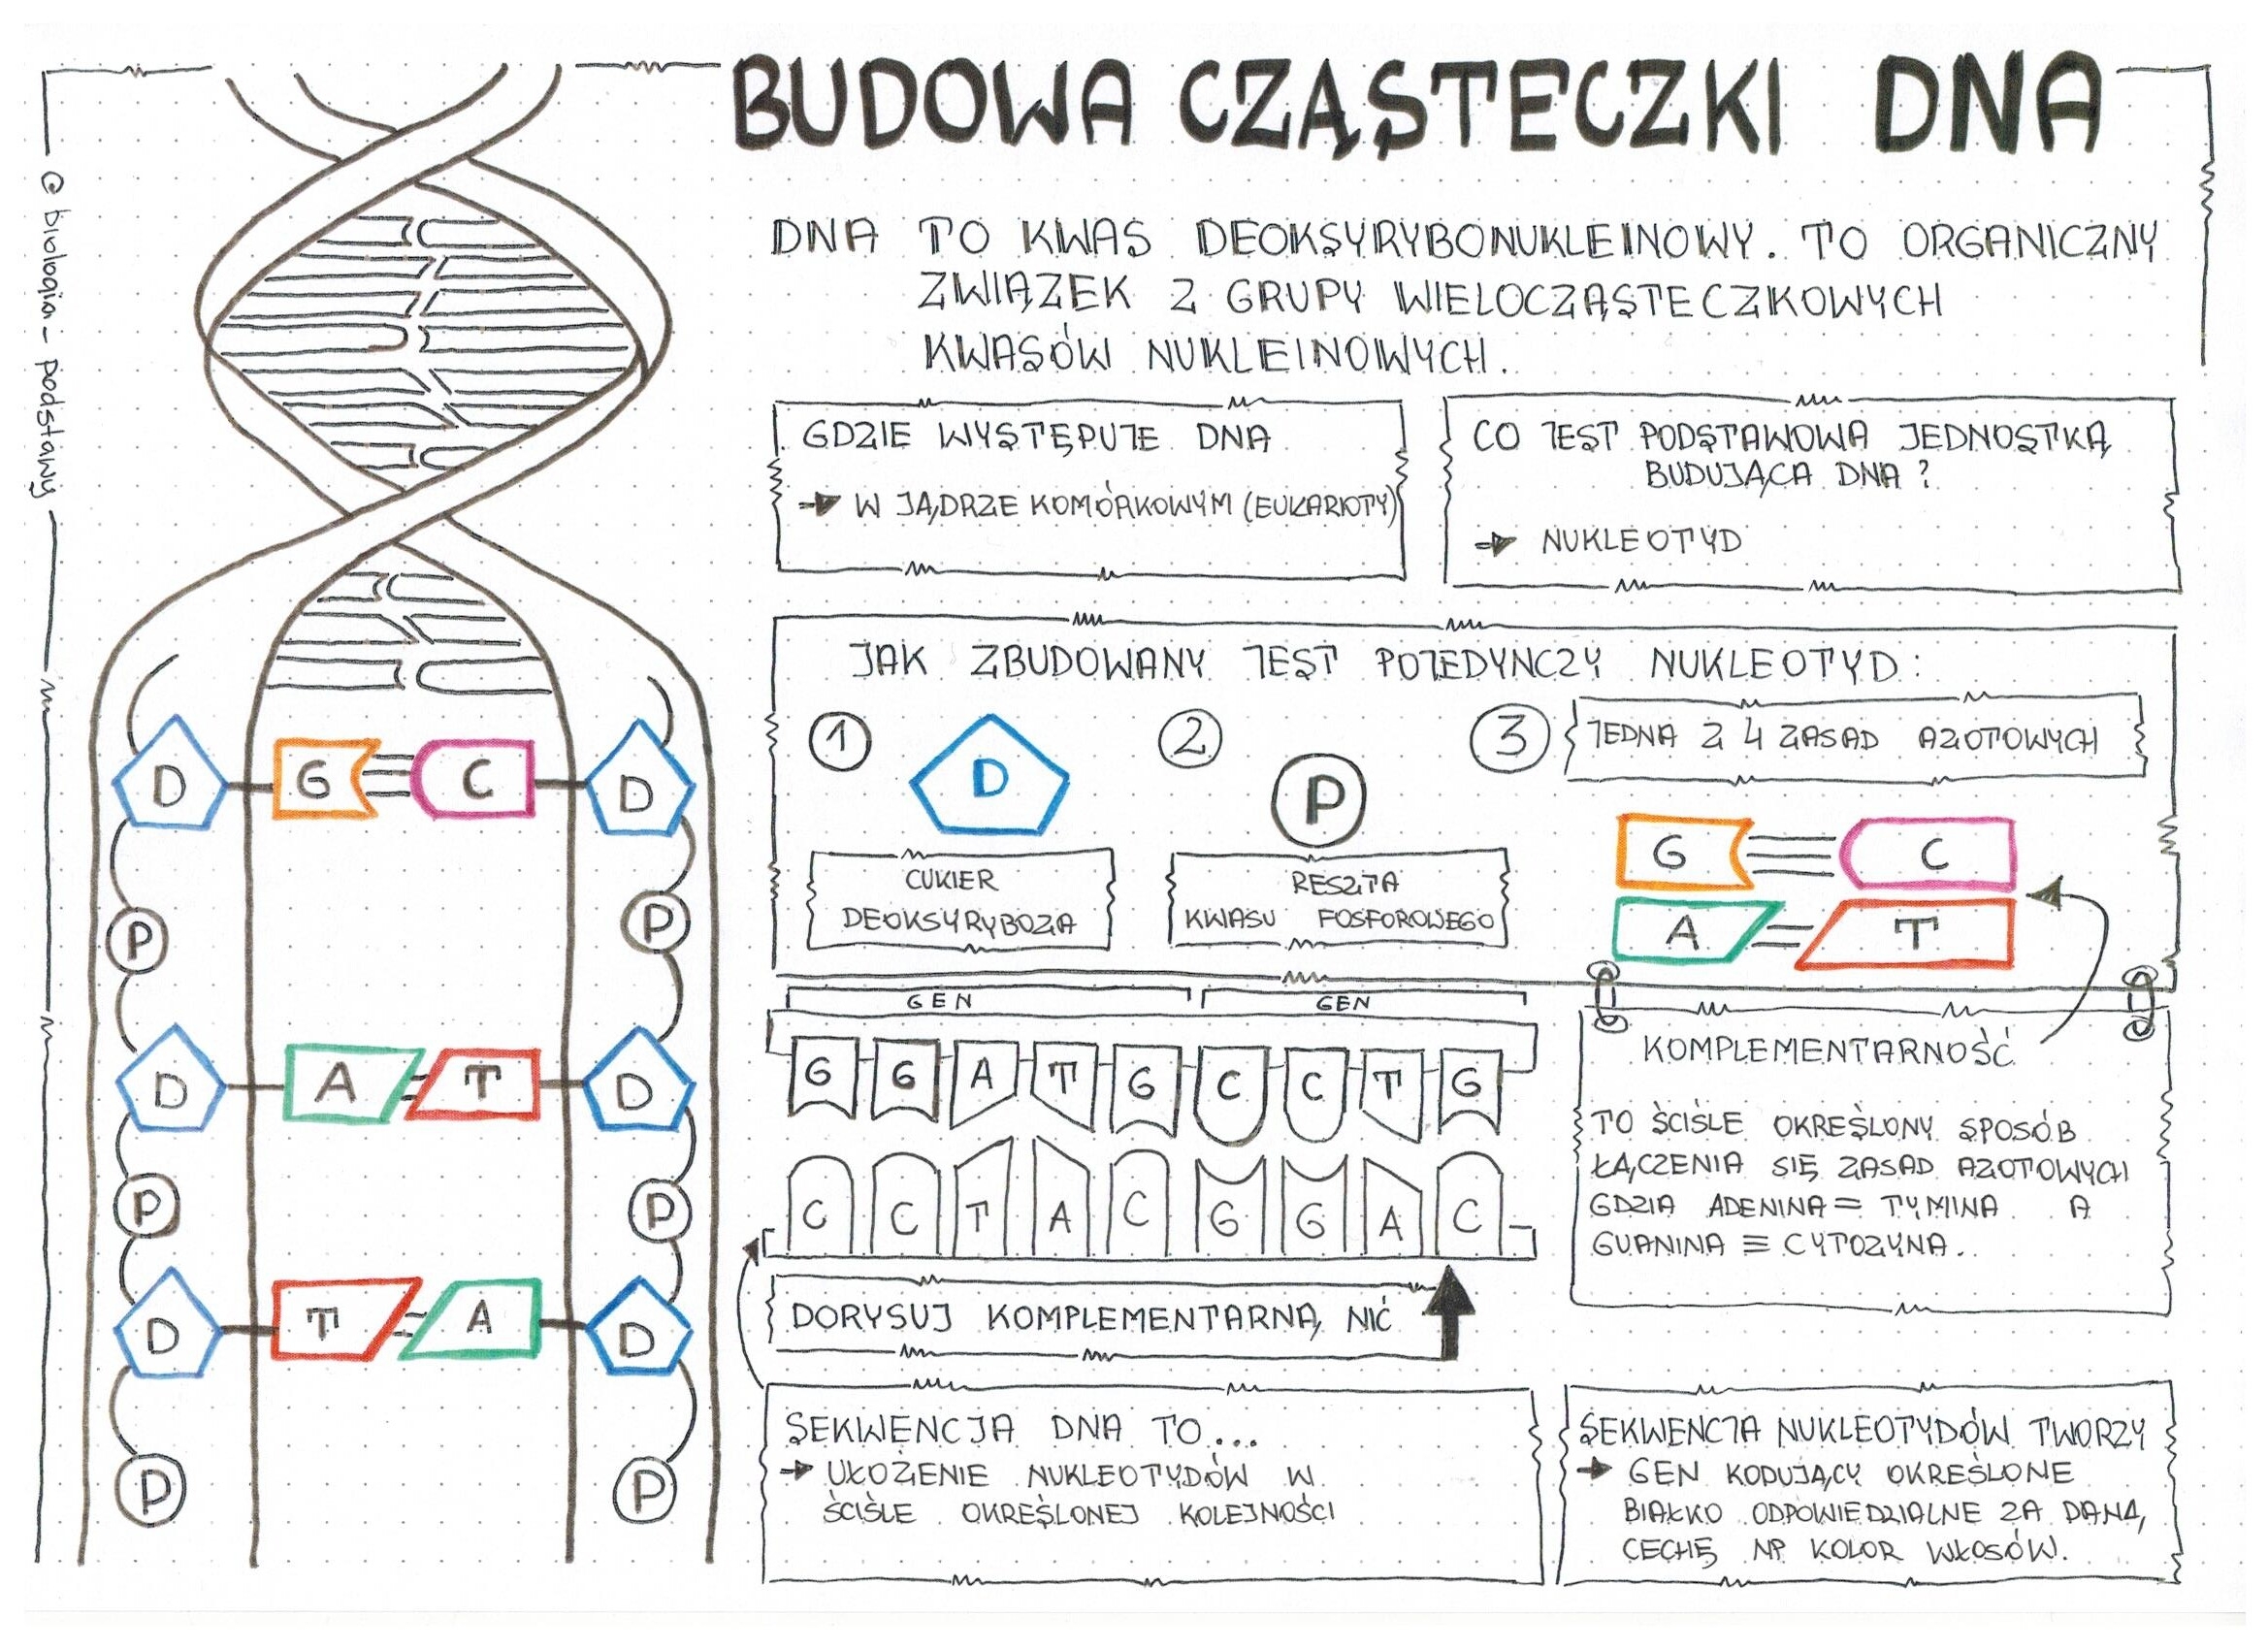 BUDOWA CZĄSTECZKI DNA
© biologia - podstawy
DNA TO KWAS DEOKSYRYBONUKLEINOWY. TO ORGANICZNY
ZWIĄZEK Z GRUPY WIELOCZĄSTECZKOWYCH
KWASÓW NUKLEINOWYCH.
GDZIE WYSTĘPUJE DNA
→ W JĄDRZE KOMÓRKOWYM (EUKARIOTY)
CO JEST PODSTAWOWĄ JEDNOSTKĄ
BUDUJĄCĄ DNA?
→ NUKLEOTYD
JAK ZBUDOWANY JEST POJEDYNCZY NUKLEOTYD:
1
D
CUKIER
DEOKSYRYBOZA
2
P
RESZTA
KWASU FOSFOROWEGO
3
JEDNA Z 4 ZASAD AZOTOWYCH
G C
A T
D G C D
P P
D A T D
P P
D T A D
P P
GEN GEN
G G A T G C C T G
C C T A C G G A C
DORYSUJ KOMPLEMENTARNĄ NIĆ
KOMPLEMENTARNOŚĆ
TO ŚCIŚLE OKREŚLONY SPOSÓB
ŁĄCZENIA SIĘ ZASAD AZOTOWYCH
GDZIA ADENINA = TYMINA A
GUANINA ≡ CYTOZYNA.
SEKWENCJA DNA TO...
→ UŁOŻENIE NUKLEOTYDÓW W
ŚCIŚLE OKREŚLONEJ KOLEJNOŚCI
SEKWENCJA NUKLEOTYDÓW TWORZY
→ GEN KODUJĄCY OKREŚLONE
BIAŁKO ODPOWIEDZIALNE ZA DANĄ
CECHĘ NP KOLOR WŁOSÓW.